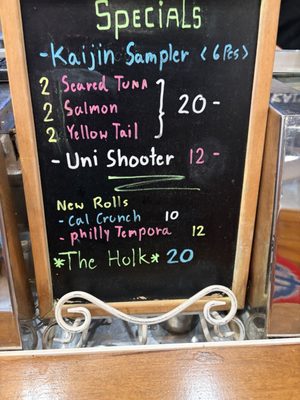 Specials
-Kaijin Sampler (6 Pcs)
2 Seared Tuna
2 Salmon } 20-
2 Yellow Tail
-Uni Shooter 12-
New Rolls
-Cal Crunch 10
-philly Tempora 12
*The Holk* 20